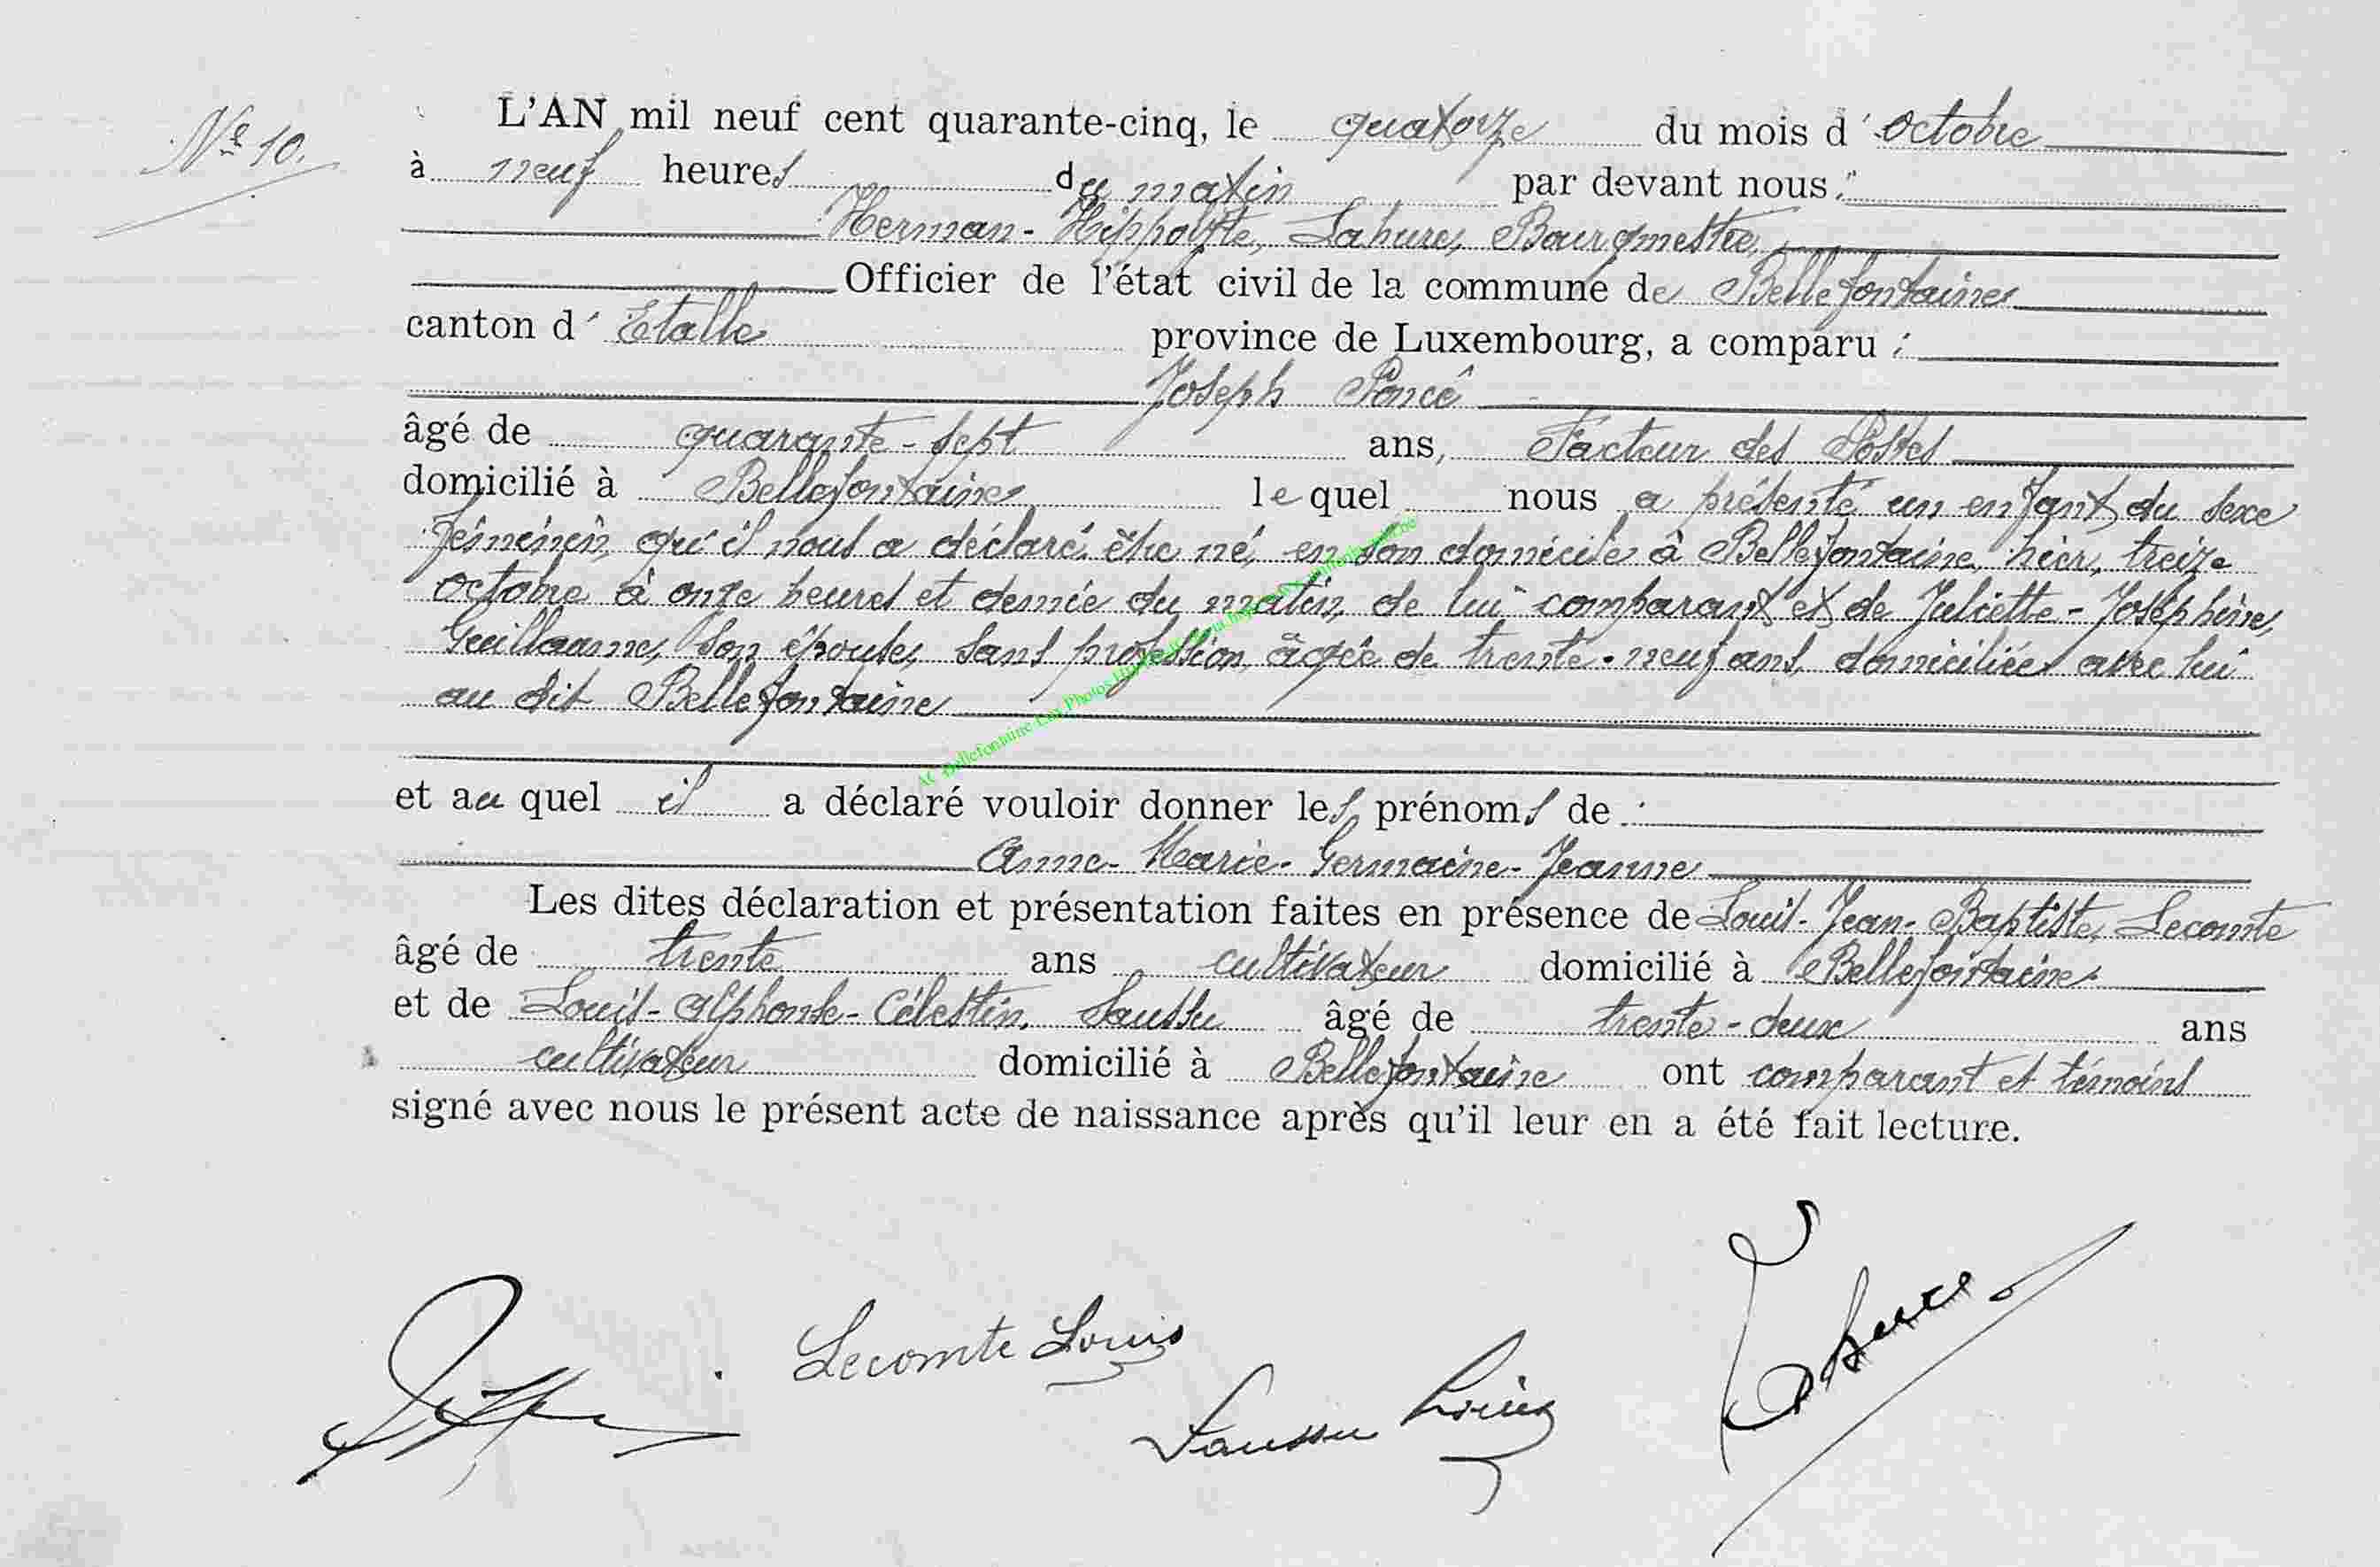 Nº 10.
L'AN mil neuf cent quarante-cinq, le quatorze du mois d' octobre
à neuf heures du matin par devant nous :
Herman-Hippolyte, Lahure, Bourgmestre,
Officier de l'état civil de la commune de Bellefontaine
canton d' Etalle province de Luxembourg, a comparu :
Joseph Poncé
âgé de quarante-sept ans, Facteur des Postes
domicilié à Bellefontaine lequel nous a présenté un enfant du sexe
féminin, qu'il nous a déclaré être né, en son domicile à Bellefontaine, hier, treize
octobre à onze heures et demie du matin, de lui comparant et de Juliette-Joséphine,
Guillaume, son épouse, sans profession, âgée de trente-neuf ans, domiciliée avec lui
au dit Bellefontaine
et au quel il a déclaré vouloir donner les prénoms de :
Anne-Marie-Germaine-Jeanne
Les dites déclaration et présentation faites en présence de Louis-Jean-Baptiste, Lecomte
âgé de trente ans cultivateur domicilié à Bellefontaine
et de Louis-Alphonse-Célestin, Saussu âgé de trente-deux ans
cultivateur domicilié à Bellefontaine ont comparant et témoins
signé avec nous le présent acte de naissance après qu'il leur en a été fait lecture.
Lecomte Louis
Saussu Louis
Lahure
AC Bellefontaine-Lux Photos